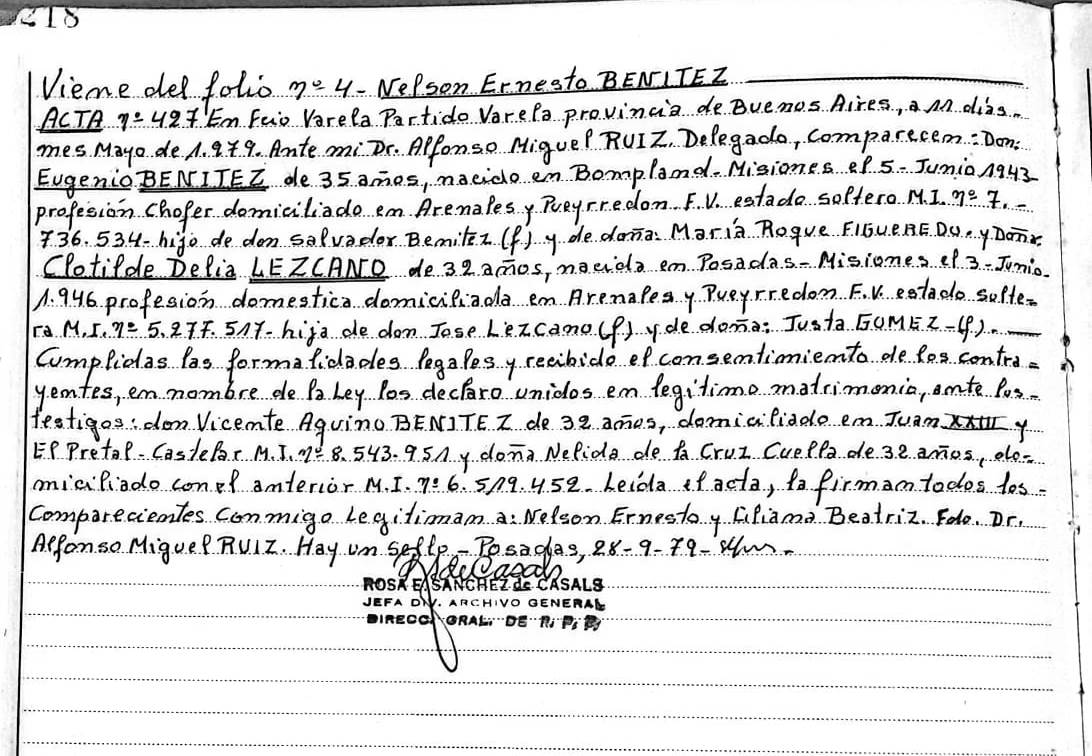 218
Viene del folio nº 4- Nelson Ernesto BENITEZ
ACTA nº 427 En Fcio Varela Partido Varela provincia de Buenos Aires, a 11 días-
mes Mayo de 1.979. Ante mi Dr. Alfonso Miguel RUIZ. Delegado, Comparecen: Don:
Eugenio BENITEZ de 35 años, nacido en Bompland- Misiones el 5- Junio 1943-
profesión Chofer domiciliado en Arenales y Pueyrredon F.V. estado soltero M.I. nº 7.-
736.534- hijo de don Salvador Benitez (f) y de doña: María Roque FIGUEREDO. y Doña:
Clotilde Delia LEZCANO de 32 años, nacida en Posadas- Misiones el 3- Junio-
1.946 profesión domestica domiciliada en Arenales y Pueyrredon F.V. estado solte=
ra M.I. nº 5.277.517- hija de don Jose Lezcano (f) y de doña: Justa GOMEZ-(f).-
Cumplidas las formalidades legales y recibido el consentimiento de los contra=
yentes, en nombre de la Ley los declaro unidos en legítimo matrimonio, ante los-
testigos: don Vicente Aquino BENITEZ de 32 años, domiciliado en Juan XXIII y
El Pretal- Castelar M.I. nº 8.543.951 y doña Nelida de la Cruz Cuella de 32 años, do=
miciliado con el anterior M.I. nº 6.519.452- Leída el acta, la firman todos los-
Comparecientes Conmigo Legitiman a: Nelson Ernesto y Liliana Beatriz. Fdo. Dr.
Alfonso Miguel RUIZ. Hay un sello- Posadas, 28-9-79-
ROSA E. SANCHEZ de CASALS
JEFA DIV. ARCHIVO GENERAL
DIRECC. GRAL. DE R. P. P.